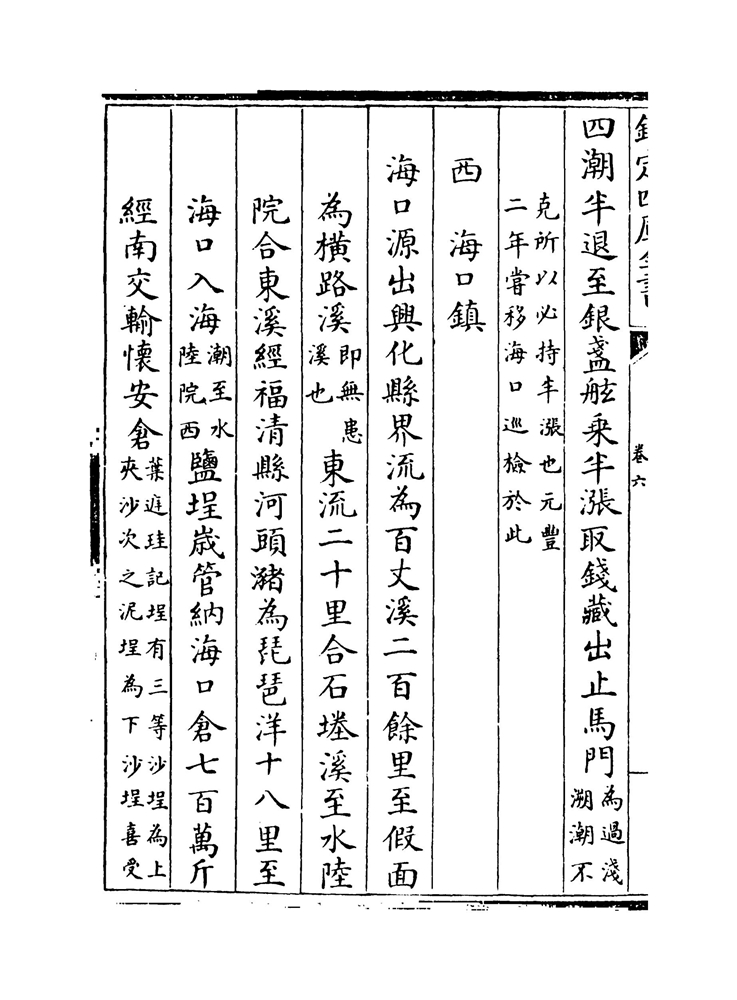 欽定四庫全書
卷六
四潮半退至銀盞舷乘半漲取錢藏出止馬門為過淺溯潮不
克所以必持半漲也元豐二年嘗移海口巡檢於此
西 海口鎮
海口源出興化縣界流為百丈溪二百餘里至假面
為橫路溪即無患溪也東流二十里合石塍溪至水陸
院合東溪經福清縣河頭瀦為琵琶洋十八里至
海口入海潮至水陸院西鹽埕歲管納海口倉七百萬斤
經南交輸懷安倉葉庭珪記埕有三等沙埕為上夾沙次之泥埕為下沙埕喜受